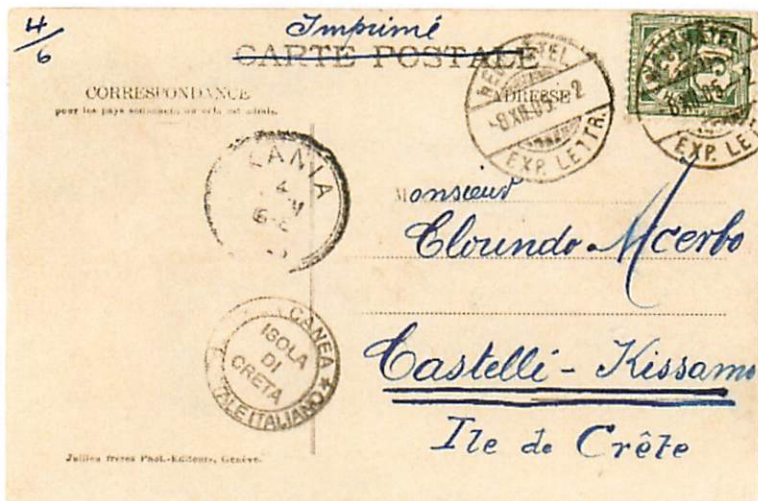 4/6
Imprimé
CARTE POSTALE
CORRESPONDANCE
ADRESSE
NEUCHÂTEL
-8 XII.05.- 2
EXP. LETTR.
NEUCHÂTEL
-8 XII.05.- 2
EXP. LE
CANEA
ISOLA
DI
CRETA
ALE ITALIANO
Monsieur
Cloundo Acerbo
Castelli - Kissamo
Ile de Crête
Jullien frères Phot.-Editeurs, Genève.